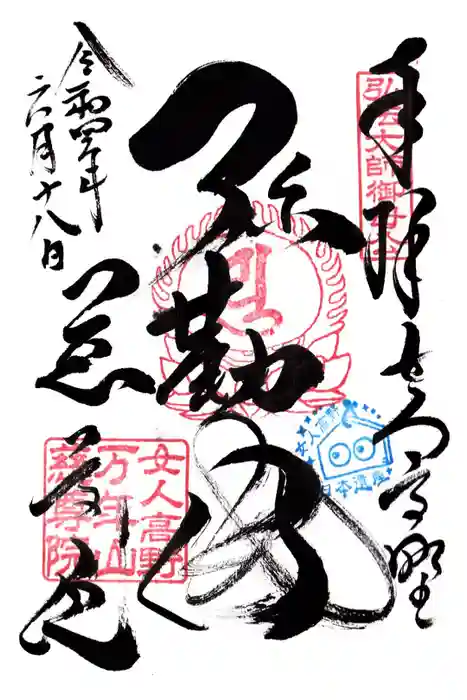 奉拝 女人高野
弘法大師御母公
弥勒佛
慈尊院
令和四年
六月十八日
女人高野
万年山
慈尊院
女人高野
日本遺産